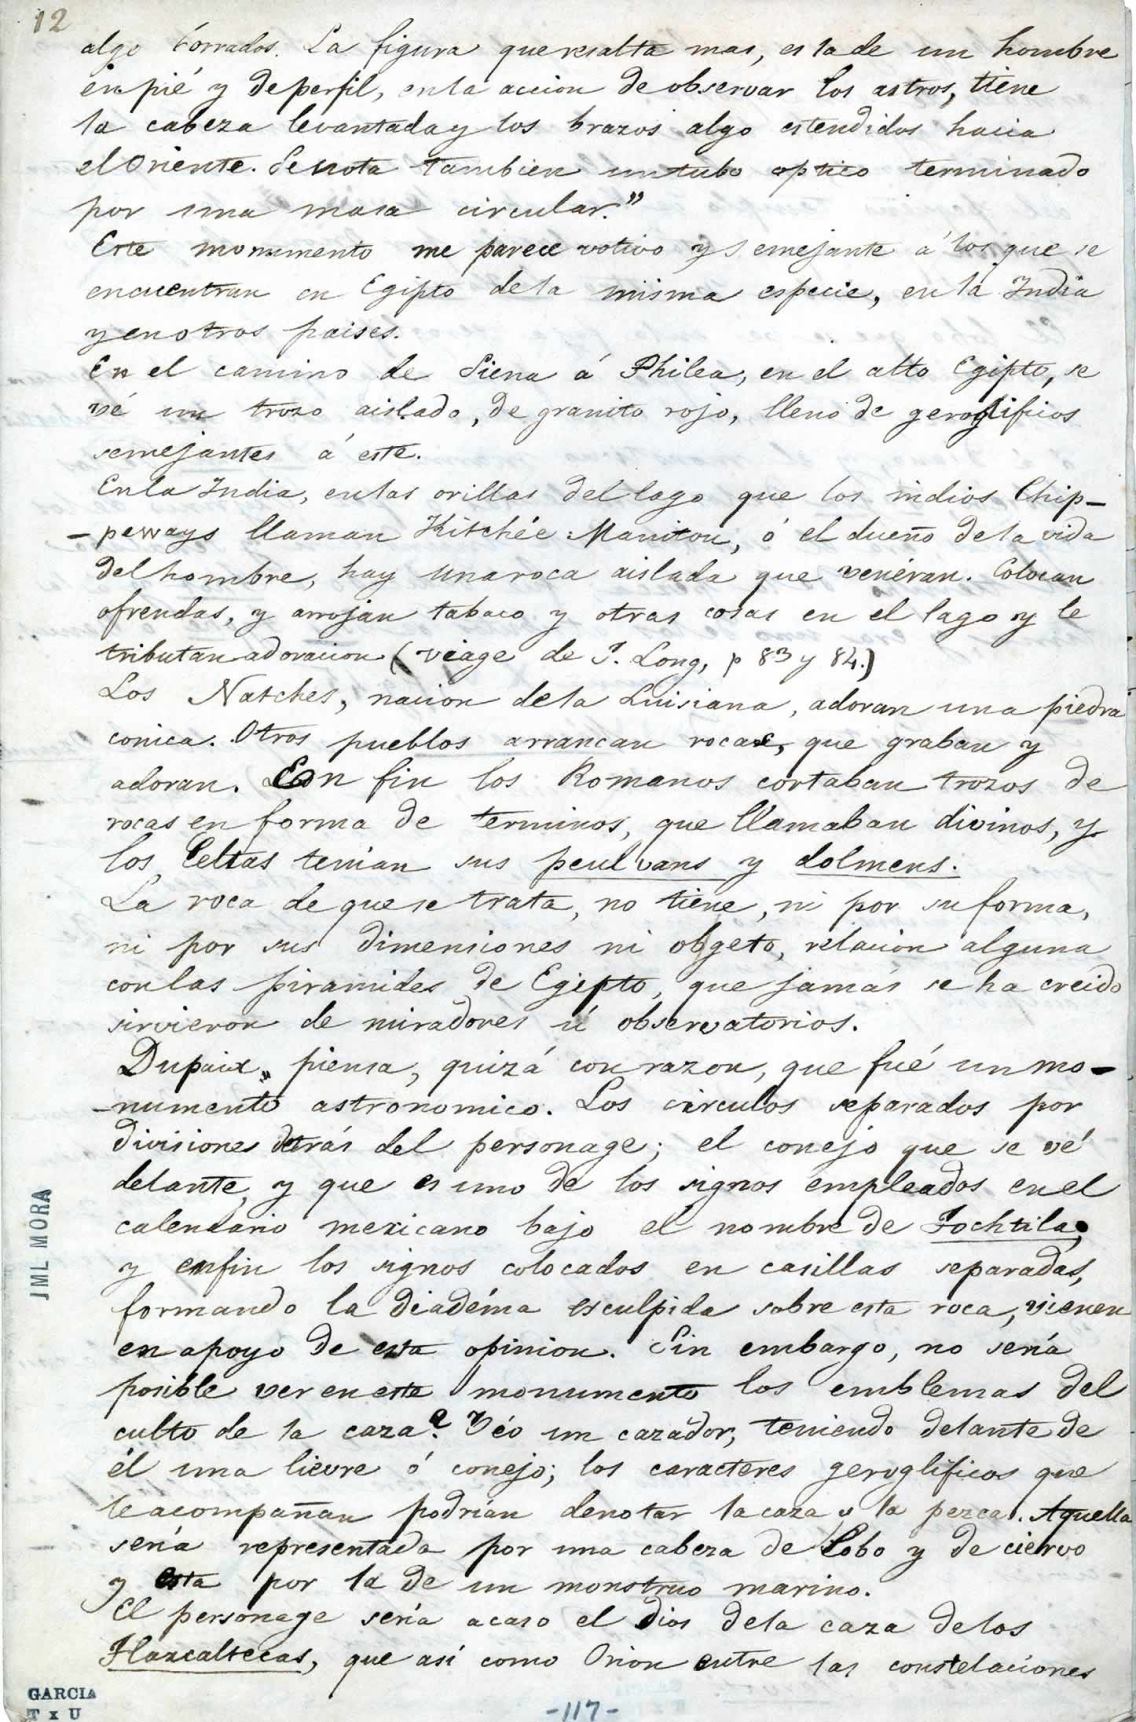 12
algo borrados. La figura que resalta mas, es la de un hombre
en pié y de perfil, en la accion de observar los astros, tiene
la cabeza levantada y los brazos algo estendidos hacia
el Oriente. Se nota tambien un tubo optico terminado
por una masa circular."
Este monumento me parece votivo y semejante á los que se
encuentran en Egipto de la misma especie, en la India
y en otros paises.
En el camino de Siena á Philea, en el alto Egipto, se
vé un trozo aislado, de granito rojo, lleno de geroglificos
semejantes á este.
En la India, en las orillas del lago que los indios Chip-
-peways llaman Kitchée Manitou, ó el dueño de la vida
del hombre, hay una roca aislada que venéran. Colocan
ofrendas, y arrojan tabaco y otras cosas en el lago y le
tributan adoracion (viage de J. Long, p 83 y 84.)
Los Natches, nacion de la Luisiana, adoran una piedra
conica. Otros pueblos arrancan rocas, que graban y
adoran. En fin los Romanos cortaban trozos de
rocas en forma de terminos, que llamaban divinos, y
los Celtas tenian sus peulvans y dolmens.
La roca de que se trata, no tiene, ni por su forma,
ni por sus dimensiones ni objeto, relacion alguna
con las piramides de Egipto, que jamás se ha creido
sirvieron de miradores ú observatorios.
Dupaix, piensa, quizá con razon, que fué un mo-
-numento astronomico. Los circulos separados por
divisiones detrás del personage; el conejo que se vé
delante, y que es uno de los signos empleados en el
calendario mexicano bajo el nombre de Tochtila,
y enfin los signos colocados en casillas separadas,
formando la diadéma esculpida sobre esta roca, vienen
en apoyo de esta opinion. Sin embargo, no seria
posible ver en este monumento los emblemas del
culto de la caza? Véo un cazador, teniendo delante de
él una lievre ó conejo; los caracteres geroglificos que
le acompañan podrian denotar la caza y la pezca. Aquella
seria representada por una cabeza de Lobo y de ciervo
y esta por la de un monstruo marino.
El personage seria acaso el Dios de la caza de los
Tlaxcaltecas, que asi como Orion entre las constelaciones
JML MORA
GARCIA
T x U
-117-